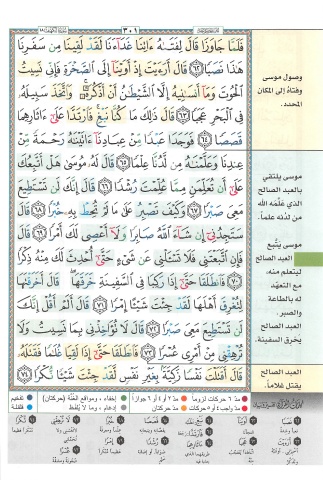 ٣٠١
فَلَمَّا جَاوَزَا قَالَ لِفَتَىٰهُ ءَاتِنَا غَدَآءَنَا لَقَدْ لَقِينَا مِن سَفَرِنَا
هَٰذَا نَصَبًا ۝٦٢ قَالَ أَرَءَيْتَ إِذْ أَوَيْنَآ إِلَى ٱلصَّخْرَةِ فَإِنِّى نَسِيتُ
ٱلْحُوتَ وَمَآ أَنسَىٰنِيهُ إِلَّا ٱلشَّيْطَٰنُ أَنْ أَذْكُرَهُۥ ۚ وَٱتَّخَذَ سَبِيلَهُۥ
فِى ٱلْبَحْرِ عَجَبًا ۝٦٣ قَالَ ذَٰلِكَ مَا كُنَّا نَبْغِ ۚ فَٱرْتَدَّا عَلَىٰٓ ءَاثَارِهِمَا
قَصَصًا ۝٦٤ فَوَجَدَا عَبْدًا مِّنْ عِبَادِنَآ ءَاتَيْنَٰهُ رَحْمَةً مِّنْ
عِندِنَا وَعَلَّمْنَٰهُ مِن لَّدُنَّا عِلْمًا ۝٦٥ قَالَ لَهُۥ مُوسَىٰ هَلْ أَتَّبِعُكَ
عَلَىٰٓ أَن تُعَلِّمَنِ مِمَّا عُلِّمْتَ رُشْدًا ۝٦٦ قَالَ إِنَّكَ لَن تَسْتَطِيعَ
مَعِىَ صَبْرًا ۝٦٧ وَكَيْفَ تَصْبِرُ عَلَىٰ مَا لَمْ تُحِطْ بِهِۦ خُبْرًا ۝٦٨ قَالَ
سَتَجِدُنِىٓ إِن شَآءَ ٱللَّهُ صَابِرًا وَلَآ أَعْصِى لَكَ أَمْرًا ۝٦٩ قَالَ
فَإِنِ ٱتَّبَعْتَنِى فَلَا تَسْـَٔلْنِى عَن شَىْءٍ حَتَّىٰٓ أُحْدِثَ لَكَ مِنْهُ ذِكْرًا
۝٧٠ فَٱنطَلَقَا حَتَّىٰٓ إِذَا رَكِبَا فِى ٱلسَّفِينَةِ خَرَقَهَا ۖ قَالَ أَخَرَقْتَهَا
لِتُغْرِقَ أَهْلَهَا لَقَدْ جِئْتَ شَيْـًٔا إِمْرًا ۝٧١ قَالَ أَلَمْ أَقُلْ إِنَّكَ
لَن تَسْتَطِيعَ مَعِىَ صَبْرًا ۝٧٢ قَالَ لَا تُؤَاخِذْنِى بِمَا نَسِيتُ وَلَا
تُرْهِقْنِى مِنْ أَمْرِى عُسْرًا ۝٧٣ فَٱنطَلَقَا حَتَّىٰٓ إِذَا لَقِيَا غُلَٰمًا فَقَتَلَهُۥ
قَالَ أَقَتَلْتَ نَفْسًا زَكِيَّةًۢ بِغَيْرِ نَفْسٍ لَّقَدْ جِئْتَ شَيْـًٔا نُّكْرًا ۝٧٤
وصول موسى
وفتاه إلى المكان
المحدد.
موسى يلتقي
بالعبد الصالح
الذي علمه الله
من لدنه علماً.
موسى يتبع
العبد الصالح
ليتعلم منه،
مع التعهد
له بالطاعة
والصبر.
العبد الصالح
يخرق السفينة.
العبد الصالح
يقتل غلاماً.
مد ٦ حركات لزوماً
مد ٢ أو ٤ أو ٦ جوازاً
إخفاء، ومواقع الغنّة (حركتان)
تفخيم
مد واجب ٤ أو ٥ حركات
مد حركتان
إدغام، وما لا يلفظ
قلقلة